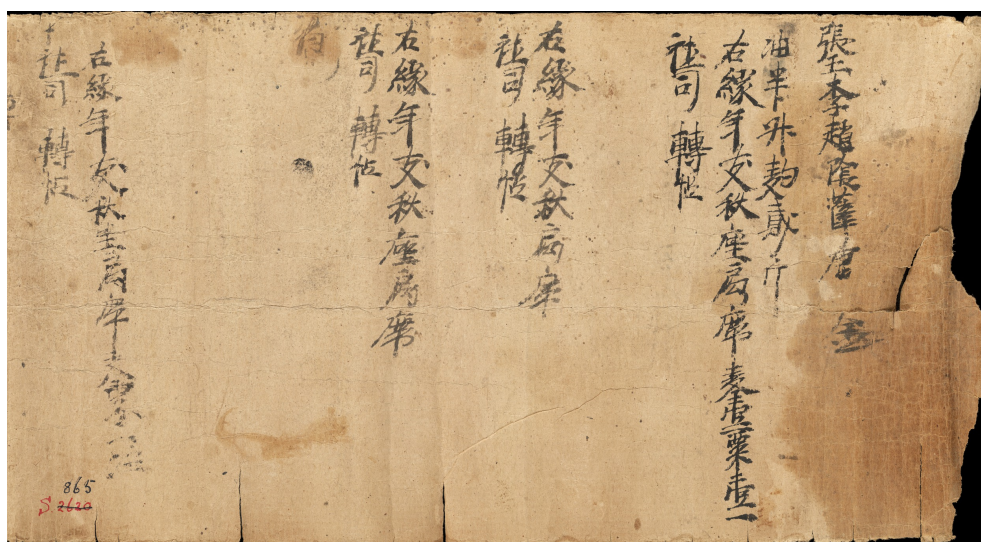 張王李趙陰薛唐
油半升麪貳斤
右緣年支秋座局席麥壹粟壹
社司 轉帖
右緣年支秋局席
社司 轉帖
右緣年支秋座局席
社司 轉帖
右緣年支秋座局席
社司 轉帖
865
S 2620